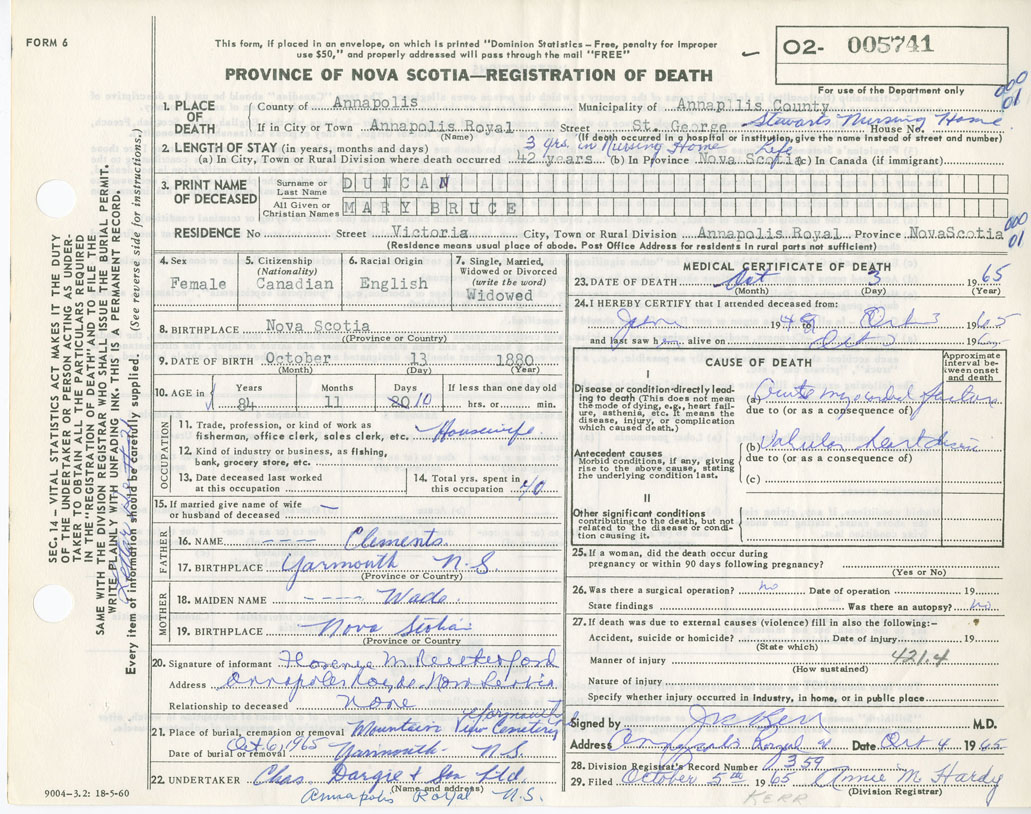 FORM 6
This form, if placed in an envelope, on which is printed "Dominion Statistics – Free, penalty for improper
use $50," and properly addressed will pass through the mail "FREE"
02- 005741
PROVINCE OF NOVA SCOTIA—REGISTRATION OF DEATH
For use of the Department only
1. PLACE OF DEATH
County of Annapolis Municipality of Annapllis County
Stewarts Nursing Home
If in City or Town Annapolis Royal Street St. George House No.
(Name) (If death occurred in a hospital or institution, give the name instead of street and number)
2. LENGTH OF STAY (in years, months and days) 3 yrs. in Nursing Home Life
(a) In City, Town or Rural Division where death occurred 42 years (b) In Province Nova Scotia (c) In Canada (if immigrant)
3. PRINT NAME OF DECEASED
Surname or Last Name DUNCAN
All Given or Christian Names MARY BRUCE
RESIDENCE No Street Victoria City, Town or Rural Division Annapolis Royal Province NovaScotia
(Residence means usual place of abode. Post Office Address for residents in rural parts not sufficient)
4. Sex
Female
5. Citizenship
(Nationality)
Canadian
6. Racial Origin
English
7. Single, Married,
Widowed or Divorced
(write the word)
Widowed
8. BIRTHPLACE Nova Scotia
((Province or Country)
9. DATE OF BIRTH October 13 1880
(Month) (Day) (Year)
10. AGE in
Years Months Days If less than one day old
84 11 20 10 hrs. or min.
OCCUPATION
11. Trade, profession, or kind of work as
fisherman, office clerk, sales clerk, etc. Housewife
12. Kind of industry or business, as fishing,
bank, grocery store, etc.
13. Date deceased last worked
at this occupation
14. Total yrs. spent in
this occupation 40
15. If married give name of wife
or husband of deceased —
FATHER
16. NAME ---- Clements
17. BIRTHPLACE Yarmouth N.S.
(Province or Country)
MOTHER
18. MAIDEN NAME ---- Wade
19. BIRTHPLACE Nova Scotia
(Province or Country)
20. Signature of informant Florence M.
Address Annapolis Royal, Nova Scotia
Relationship to deceased None
Yarmouth
21. Place of burial, cremation or removal Mountain View Cemetery
Oct 6, 1965
Date of burial or removal Yarmouth N.S.
22. UNDERTAKER Chas. Dargie & Son Ltd
(Name and address)
Annapolis Royal N.S.
9004-3.2: 18-5-60
MEDICAL CERTIFICATE OF DEATH
23. DATE OF DEATH Oct 3 1965
(Month) (Day) (Year)
24. I HEREBY CERTIFY that I attended deceased from:
June 1949 to Oct 3 1965
and last saw h alive on Oct 3 1965
CAUSE OF DEATH
Approximate
interval between
onset and death
I
Disease or condition directly leading
to death (This does not mean
the mode of dying, e.g., heart failure,
asthenia, etc. It means the
disease, injury, or complication
which caused death.)
(a) Acute myocardial failure
due to (or as a consequence of)
Antecedent causes
Morbid conditions, if any, giving
rise to the above cause, stating
the underlying condition last.
(b) Valvular heart disease
due to (or as a consequence of)
(c)
II
Other significant conditions
contributing to the death, but not
related to the disease or condition
causing it.
25. If a woman, did the death occur during
pregnancy or within 90 days following pregnancy?
(Yes or No)
26. Was there a surgical operation? no Date of operation 19
State findings Was there an autopsy? no
27. If death was due to external causes (violence) fill in also the following:–
Accident, suicide or homicide? Date of injury 19
(State which)
Manner of injury 421.4
(How sustained)
Nature of injury
Specify whether injury occurred in industry, in home, or in public place
Signed by Kerr M.D.
Address Annapolis Royal Date Oct 4 1965
28. Division Registrar's Record Number 1359
29. Filed October 5th 1965 Annie M Hardy
(Division Registrar)
KERR
SEC. 14 – VITAL STATISTICS ACT MAKES IT THE DUTY
OF THE UNDERTAKER OR PERSON ACTING AS UNDERTAKER
TO OBTAIN ALL THE PARTICULARS REQUIRED
IN THE "REGISTRATION OF DEATH" AND TO FILE THE
SAME WITH THE DIVISION REGISTRAR WHO SHALL ISSUE THE BURIAL PERMIT.
WRITE PLAINLY WITH UNFADING INK. THIS IS A PERMANENT RECORD.
Every item of information should be carefully supplied. (See reverse side for instructions.)